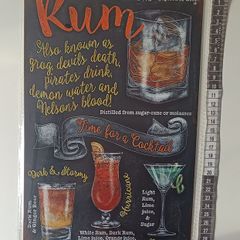 Rum
Also known as
grog, devils death,
pirates drink,
demon water and
Nelson's blood!
Distilled from sugar-cane or molasses
Time for a Cocktail
Dark & Stormy
Hurricane
Dark Rum
& Ginger Beer
Light
Rum,
Lime
Juice,
&
Sugar
White Rum, Dark Rum,
Lime juice, Orange juice,